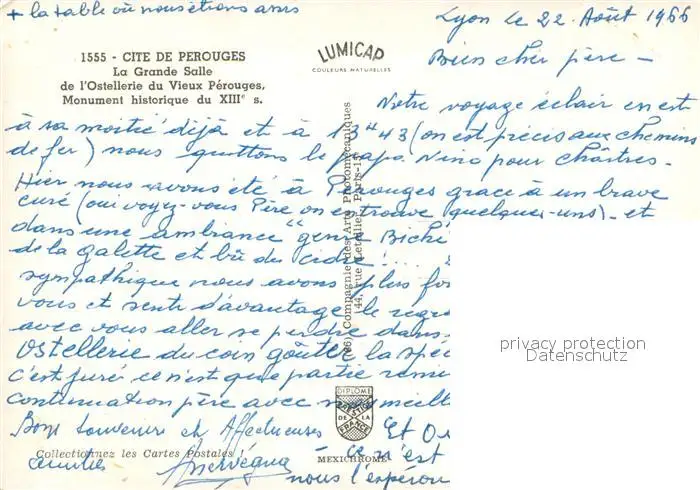 + la table où nous étions assis
Lyon le 22 Août 1966
1555 - CITE DE PEROUGES
La Grande Salle
de l'Ostellerie du Vieux Pérouges,
Monument historique du XIIIe s.
LUMICAP
COULEURS NATURELLES
Bien cher père -
Notre voyage éclair en est
à sa moitié déjà et à 13H43 (on est précis aux chemins
de fer) nous quittons le papa. Nino pour Chârtres.
Hier nous avons été à Pérouges grace à un brave
curé (oui voyez-vous Père on en trouve quelques-uns) - et
dans une ambiance "genre Bichi
de la galette et bû du cidre!..
sympathique nous avons plus fo
vous et senti d'avantage le regr
avec vous aller se perdre dans
Ostellerie du coin goûter la spéc
c'est juré ce n'est que partie remi
continuation père avec nos meill
Bons souvenirs et Affectueuses
amitiés
Et Ou
- ce n'est
nous l'espéron
Compagnie des Arts Photomécaniques
44, rue Letellier, Paris-15
DIPLOME
PRESTIGE
DE LA
FRANCE
Collectionnez les Cartes Postales
MEXICHROME
privacy protection
Datenschutz